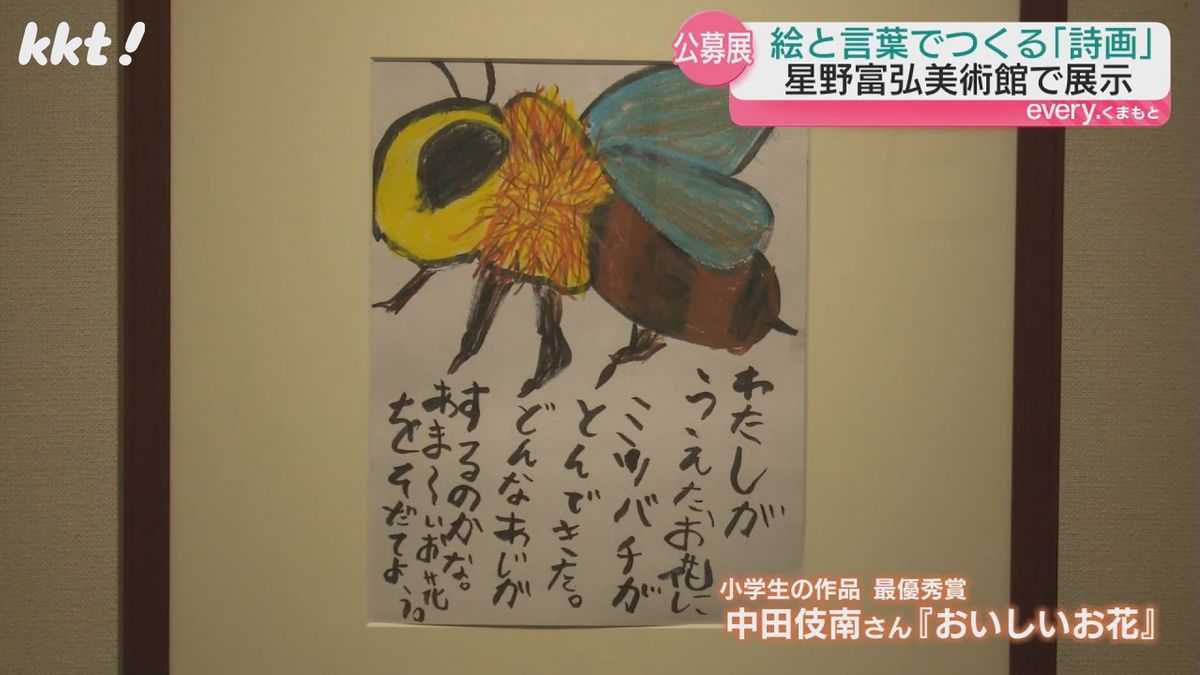 kkt!
公募展
絵と言葉でつくる「詩画」
星野富弘美術館で展示
every.くまもと
わたしが
うえたお花に
ミツバチが
とんできた。
どんなあじが
するのかな。
あま〜いお花
をそだてよう。
小学生の作品 最優秀賞
中田伎南さん『おいしいお花』